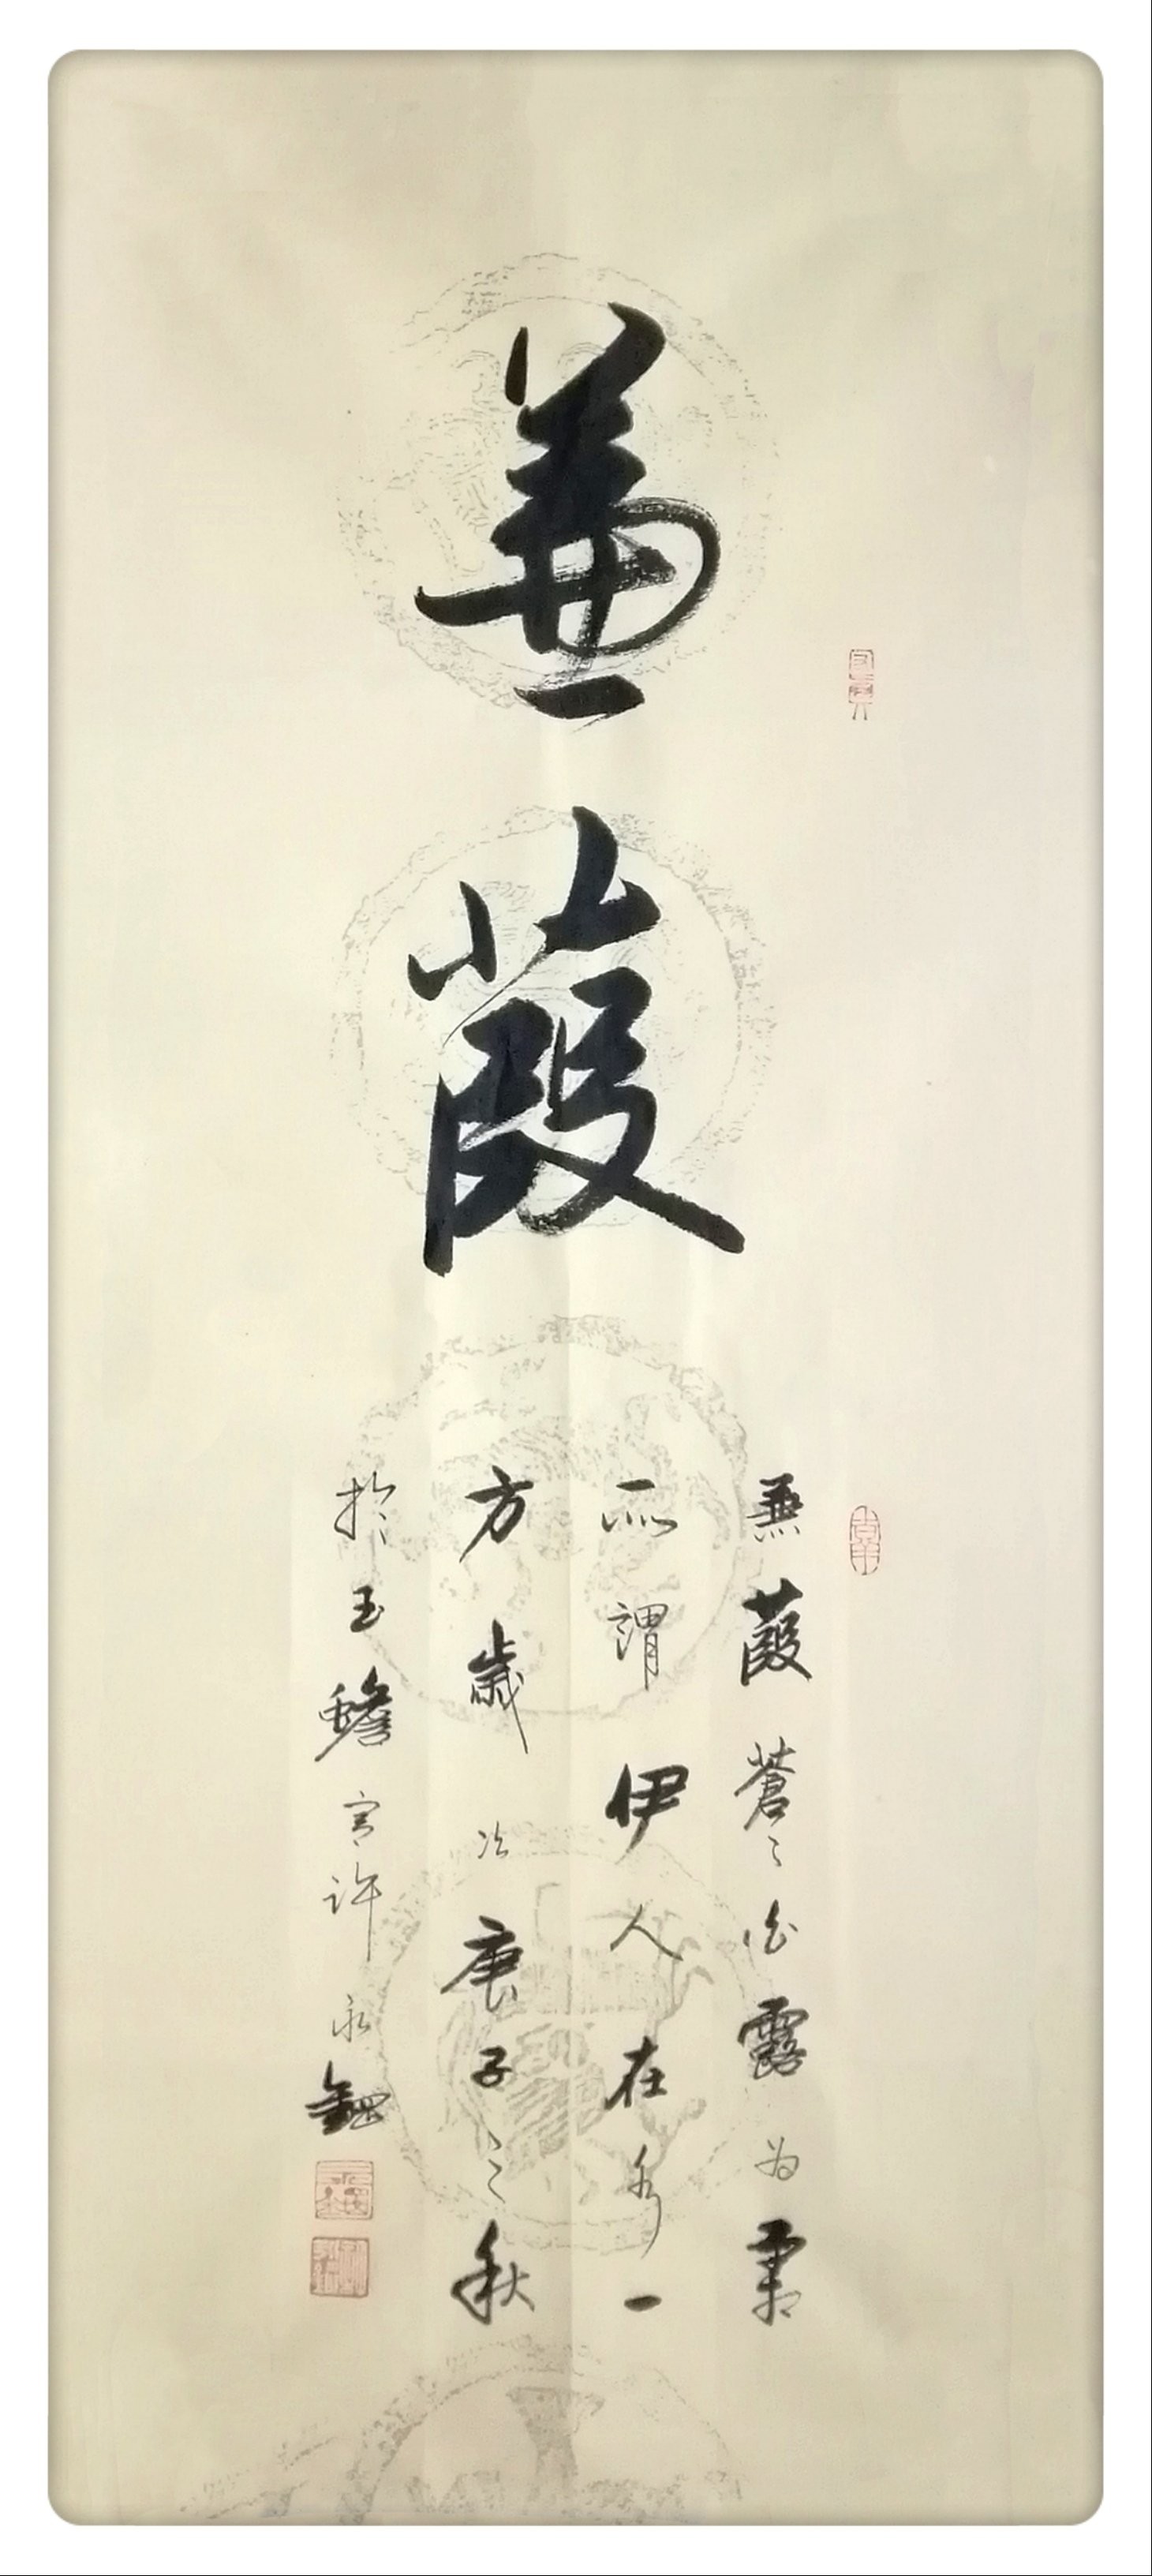 蒹葭
蒹葭蒼々白露為霜
所謂伊人在水一
方歲次庚子之秋
於玉蟾宮許永鋼